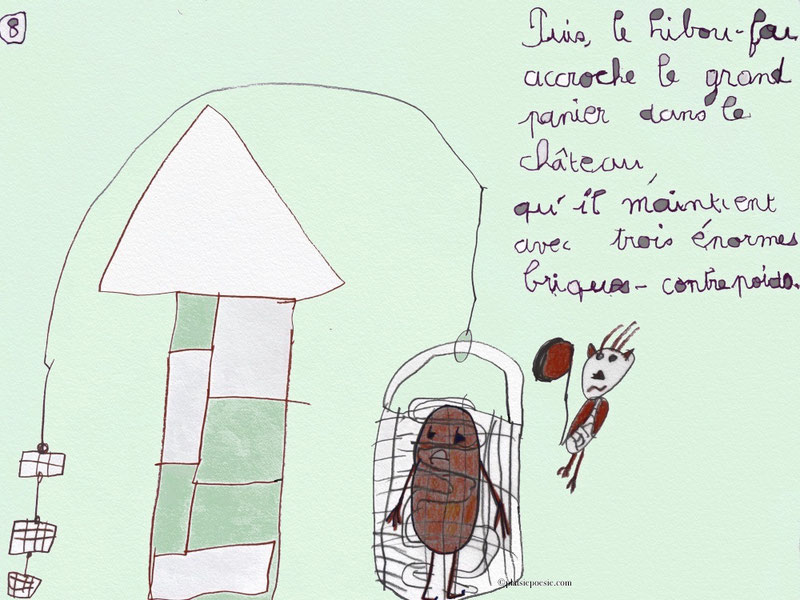 8
Puis, le hibou-fou
accroche le grand
panier dans le
château,
qu'il maintient
avec trois énormes
briques - contrepoids.
©plaisicpoesie.com